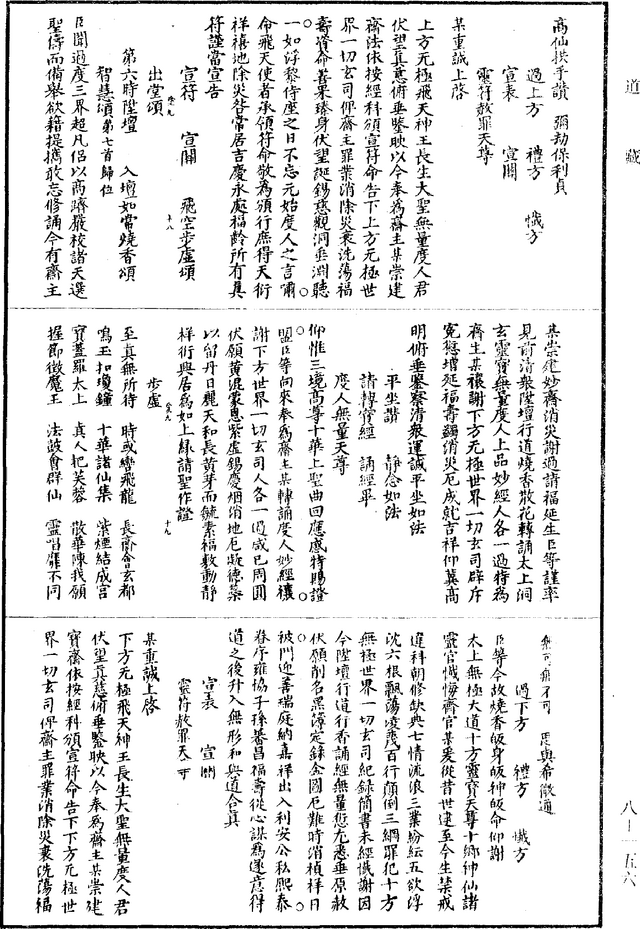 道藏
八十一五六
高仙拱手讚　彌劫保利貞
過上方　禮方　懺方
宣表　宣關
靈符赦罪天尊
某重誠上啓
上方元極飛天神王長生大聖無量度人君
伏望真慈俯垂鑒映以今奉為齋主某崇建
齋法依按經科頒宣符命告下上方元極世
界一切玄司俾齋主罪業消除災衰洗蕩福
壽資命善果臻身伏望誕錫慈觀洞垂淵聽
一如浮黎侍座之日不忘元始度人之言爾
命飛天使者承領符命敬為頒行庶得天衍
祥禧地除災咎常居吉慶永處福齡所有真
符謹當宣告
宣符　宣關　飛空步虛頌
出堂頌
第六時陞壇　入壇如常燒香頌
智慧頌第七首歸位
臣聞過度三界超凡侶以高躋嚴校諸天選
聖儔而備舉欲藉提攜敢忘修誦今有齋主
某崇建妙齋消災謝過請福延生臣等謹率
見前清衆陞壇行道燒香散花轉誦太上洞
玄靈寶無量度人上品妙經人各一過特為
齋主某禳謝下方元極世界一切玄司辟斥
冤愆增延福壽蠲消災厄成就吉祥仰冀高
明俯垂鑒察清衆運誠平坐如法
平坐讚　靜念如法
請轉寶經　誦經平
度人無量天尊
仰惟三境高尊十華上聖曲回應感特賜證
盟臣等向來奉為齋主某轉誦度人妙經禳
謝下方世界一切玄司人各一過咸已周圓
伏願黃混蒙恩紫虛錫慶烟消地厄凝德藻
以留丹日麗天和長黃芽而毓素福敷動靜
祥衍興居為如上緣請聖作證
步虛
至真無所待　時或轡飛龍　長齋會玄都
鳴玉扣瓊鐘　十華諸仙集　紫煙結成宮
寶蓋羅太上　真人把芙蓉　散華陳我願
握節徵魔王　法鼓會群仙　靈唱靡不同
無可無不可　思與希微通
過下方　禮方　懺方
臣等今故燒香皈身皈神皈命仰謝
太上無極大道十方靈寶天尊十鄉神仙諸
靈官懺悔齋官某爰從昔世逮至今生禁戒
違科朝修缺典七情流浪三業紛紜五欲浮
沈六根飄蕩凌蔑百行顛倒三綱罪犯十方
無極世界一切玄司紀錄簡書未經懺謝因
今陞壇行道行香誦經無量愆尤悉垂原赦
伏願削名黑簿定錄金圖厄難時消楨祥日
被門迎善瑞庭納嘉祥出入利安公私熙泰
眷序雍協子孫蕃昌福壽從心謀為遂意得
道之後升入無形和與道合真
宣表　宣關
靈符赦罪天尊
某重誠上啓
下方元極飛天神王長生大聖無量度人君
伏望真慈俯垂鑒映以今奉為齋主某崇建
寶齋依按經科頒宣符命告下下方元極世
界一切玄司俾齋主罪業消除災衰洗蕩福